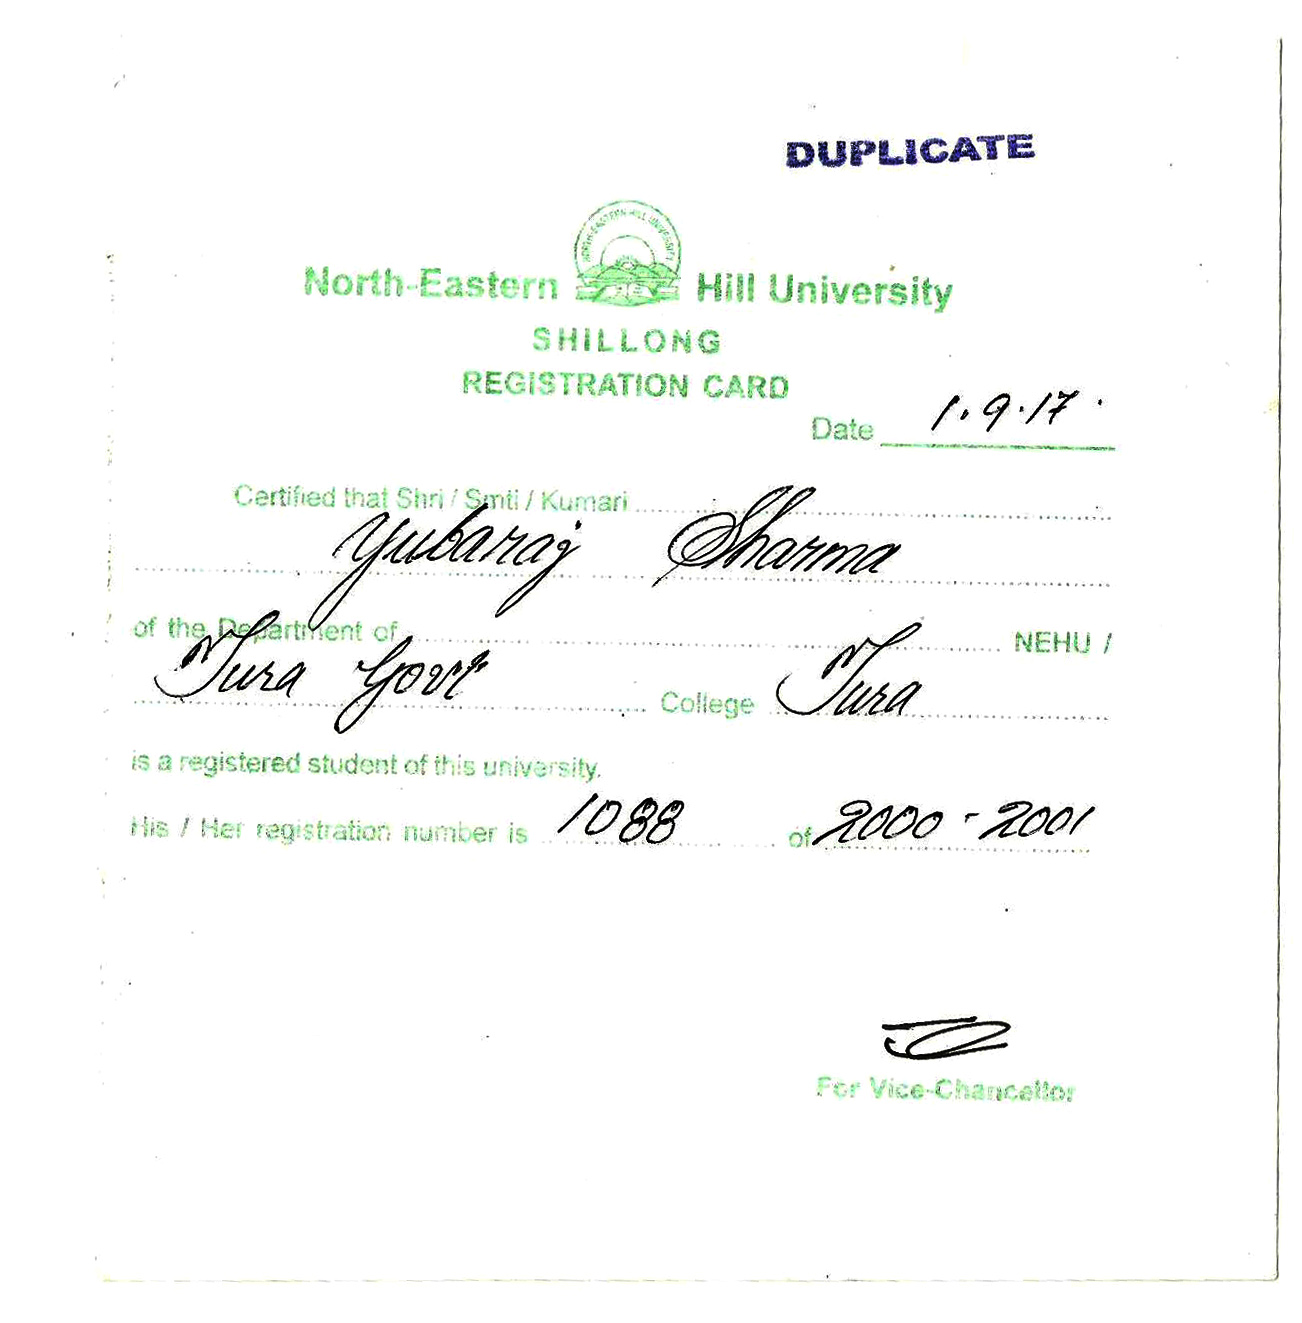 DUPLICATE
NORTH-EASTERN HILL UNIVERSITY
North-Eastern Hill University
SHILLONG
REGISTRATION CARD
Date 1.9.17.
Certified that Shri / Smti / Kumari
Yubaraj Sharma
of the Department of NEHU /
Tura Govt College Tura
is a registered student of this university.
His / Her registration number is 1088 of 2000-2001
For Vice-Chancellor